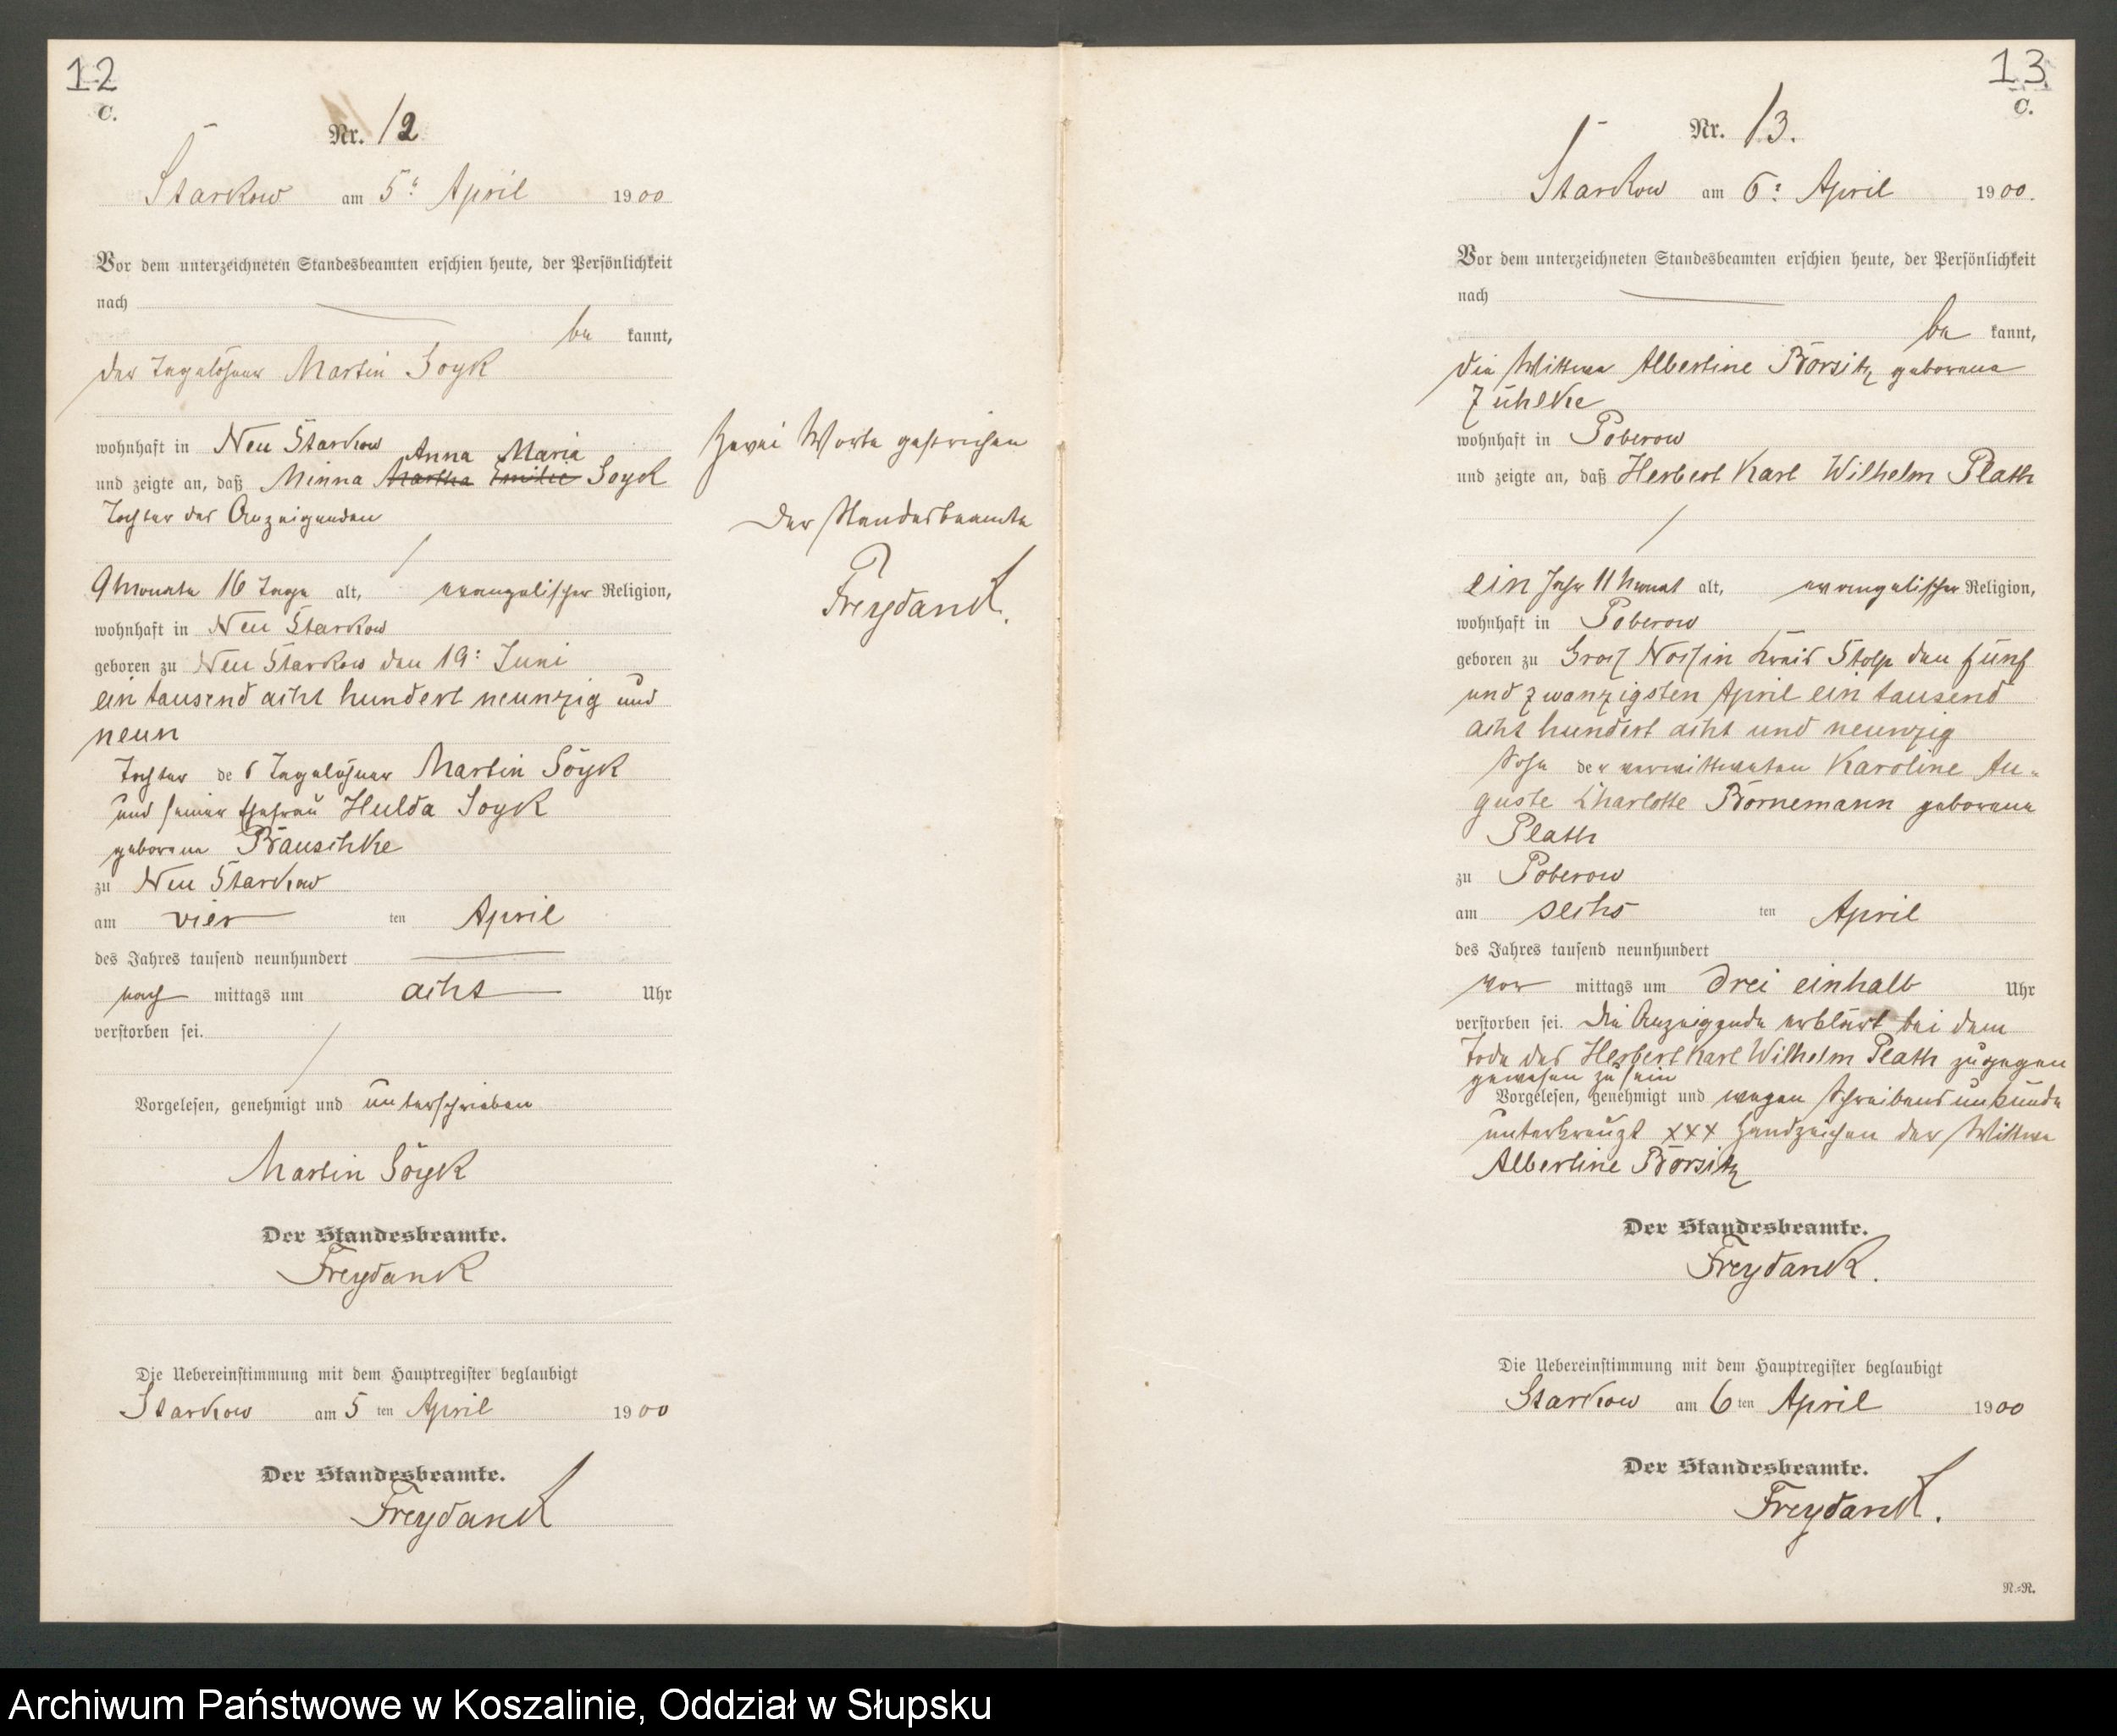 12
C.
Nr. 12
Starkow am 5t. April 1900
Vor dem unterzeichneten Standesbeamten erschien heute, der Persönlichkeit
nach
be kannt,
der Tagelöhner Martin Soyk
wohnhaft in Neu Starkow
Anna Maria
und zeigte an, daß Minna Martha Emilie Soyk
Tochter des Anzeigenden
9 Monate 16 Tage alt, evangelischer Religion,
wohnhaft in Neu Starkow
geboren zu Neu Starkow den 19t Juni
ein tausend acht hundert neunzig und
neun
Tochter des Tagelöhner Martin Soyk
und seiner Ehefrau Hulda Soyk
geborene Bauschke
zu Neu Starkow
am vier ten April
des Jahres tausend neunhundert
nach mittags um acht Uhr
verstorben sei.
Vorgelesen, genehmigt und unterschrieben
Martin Soyk
Der Standesbeamte.
Freydank
Die Uebereinstimmung mit dem Hauptregister beglaubigt
Starkow am 5 ten April 1900
Der Standesbeamte.
Freydank
Zwei Worte gestrichen
Der Standesbeamte
Freydank.
13
C.
Nr. 13.
Starkow am 6t April 1900.
Vor dem unterzeichneten Standesbeamten erschien heute, der Persönlichkeit
nach
be kannt,
die Wittwe Albertine Borsitz geborene
Zühlke
wohnhaft in Poberow
und zeigte an, daß Herbert Karl Wilhelm Plath
ein Jahr 11 Monat alt, evangelischer Religion,
wohnhaft in Poberow
geboren zu Groß Nossin Kreis Stolp den fünf
und zwanzigsten April ein tausend
acht hundert acht und neunzig
Sohn der verwittweten Karoline Au-
guste Charlotte Bornemann geborene
Plath
zu Poberow
am sechs ten April
des Jahres tausend neunhundert
vor mittags um drei einhalb Uhr
verstorben sei. Die Anzeigende erklärt bei dem
Tode des Herbert Karl Wilhelm Plath zugegen
gewesen zu sein
Vorgelesen, genehmigt und wegen Schreibensunkunde
unterkreuzt xxx Handzeichen der Wittwe
Albertine Borsitz
Der Standesbeamte.
Freydank.
Die Uebereinstimmung mit dem Hauptregister beglaubigt
Starkow am 6 ten April 1900
Der Standesbeamte.
Freydank.
N.=N.
Archiwum Państwowe w Koszalinie, Oddział w Słupsku